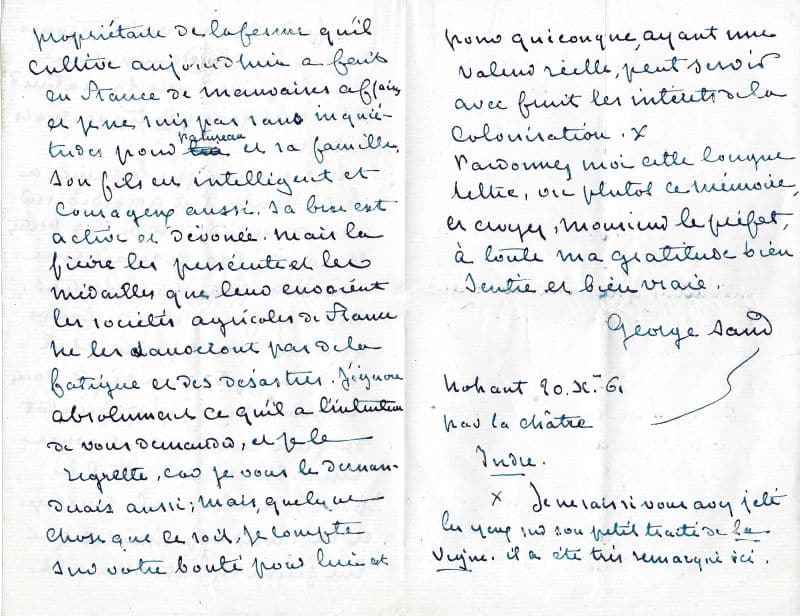 propriétaire de la ferme qu'il
cultive aujourd'hui a fait
en France de mauvaises affaires
et je ne suis pas sans inquié-
tudes pour
et sa famille.
Son fils est intelligent et
courageux aussi. Sa bru est
active et dévouée. Mais la
fièvre les persécute et les
médailles que leur envoient
les sociétés agricoles de France
ne les sauveront pas de la
fatigue et des désastres. J'ignore
absolument ce qu'il a l'intention
de vous demander, et je le
regrette, car je vous le deman-
derais aussi; mais, quelque
chose que ce soit, je compte
sur votre bonté pour lui et
pour quiconque, ayant une
valeur réelle, peut servir
avec fruit les intérêts de la
Colonisation. x
Pardonnez moi cette longue
lettre, ou plutot ce mémoire,
et croyez, Monsieur le préfet,
à toute ma gratitude bien
sentie et bien vraie.
George Sand
Nohant 20. Xbre 61
par la Châtre
Indre.
x Je ne sais si vous avez jeté
les yeux sur son petit traité de la
vigne. il a été très remarqué ici.